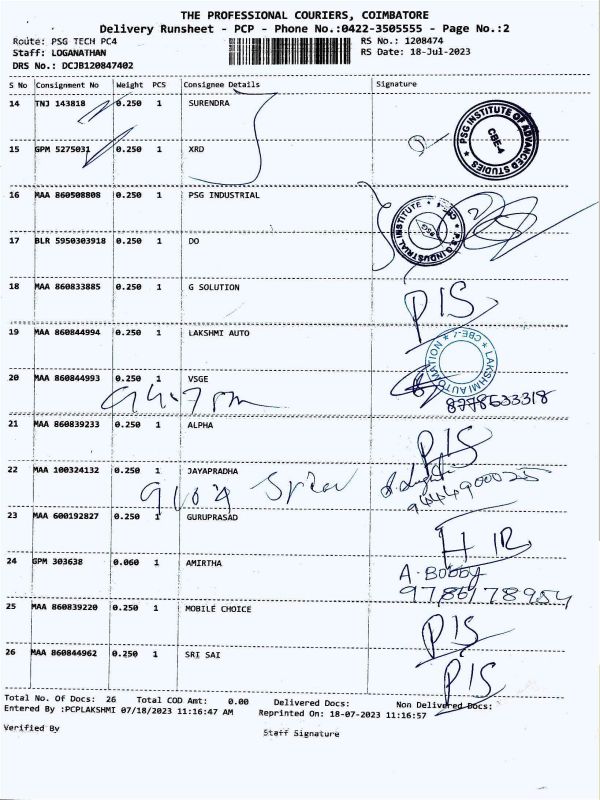 THE PROFESSIONAL COURIERS, COIMBATORE
Delivery Runsheet - PCP - Phone No.:0422-3505555 - Page No.:2
Route: PSG TECH PC4 RS No.: 1208474
Staff: LOGANATHAN RS Date: 18-Jul-2023
DRS No.: DCJB120847402
S No Consignment No Weight PCS Consignee Details Signature
14 TNJ 143818 0.250 1 SURENDRA
PSG INSTITUTE OF ADVANCED STUDIES * CBE-4
15 GPM 5275031 0.250 1 XRD
16 MAA 860508808 0.250 1 PSG INDUSTRIAL
P.S.G INDUSTRIAL INSTITUTE * CBE-4 * PSG
17 BLR 5950303918 0.250 1 DO
18 MAA 860833885 0.250 1 G SOLUTION P/S
19 MAA 860844994 0.250 1 LAKSHMI AUTO
* LAKSHMI AUTOMATION * CBE-7
20 MAA 860844993 0.250 1 VSGE
8778533318
21 MAA 860839233 0.250 1 ALPHA P/S
22 MAA 100324132 0.250 1 JAYAPRADHA
9444900025
23 MAA 600192827 0.250 1 GURUPRASAD
24 GPM 303638 0.060 1 AMIRTHA A. Bobby
9786178954
25 MAA 860839220 0.250 1 MOBILE CHOICE P/S
26 MAA 860844962 0.250 1 SRI SAI P/S
Total No. Of Docs: 26 Total COD Amt: 0.00 Delivered Docs: Non Delivered Docs:
Entered By :PCPLAKSHMI 07/18/2023 11:16:47 AM Reprinted On: 18-07-2023 11:16:57
Verified By Staff Signature